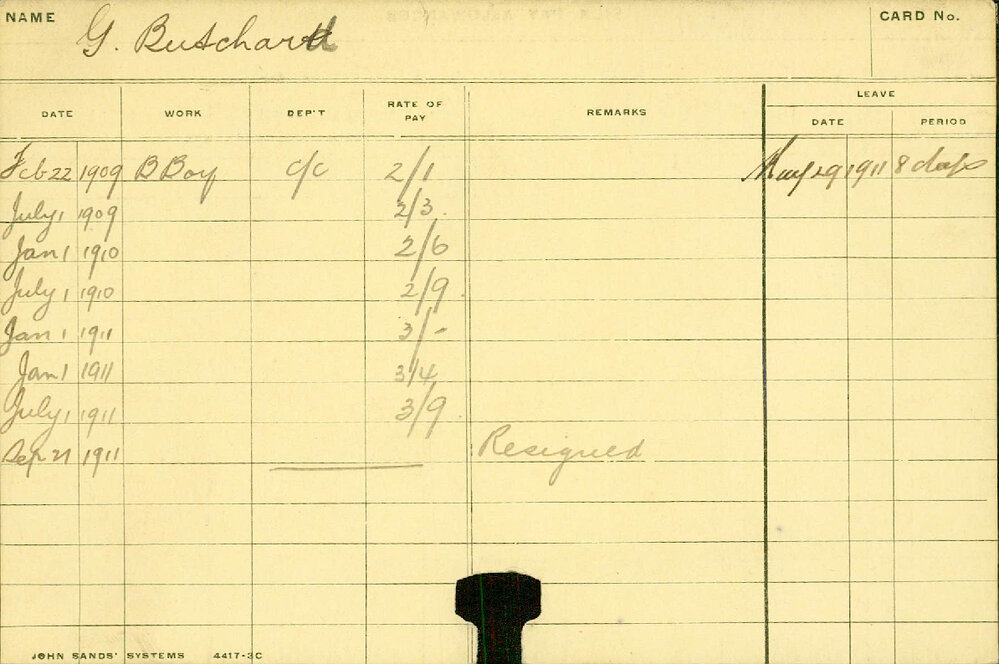 NAME G. Butchard CARD No.
LEAVE
DATE WORK DEP'T RATE OF PAY REMARKS DATE PERIOD
Feb 22 1909 B Boy c/c 2/1 May 29 1911 8 days
July 1 1909 2/3
Jan 1 1910 2/6
July 1 1910 2/9
Jan 1 1911 3/-
Jan 1 1911 3/4
July 1 1911 3/9
Sep 21 1911 Resigned
JOHN SANDS' SYSTEMS 4417-3C